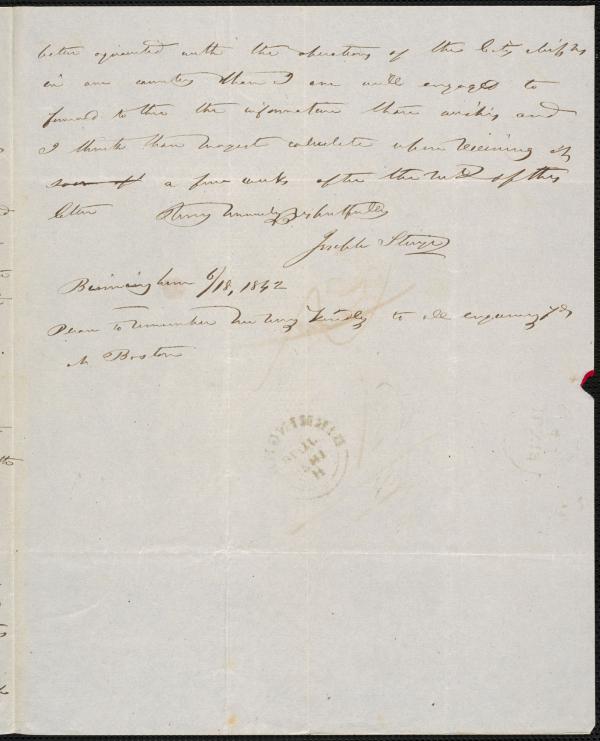 better acquainted with the operations of the City
in our country than I am will engaged to
forward to thee the information thou and
I think thou mayest calculate upon receiving it
soon of a few weeks after the of this
letter Thine very respectfully
Joseph Sturge
Birmingham 6/18, 1842
Please to remember me very kindly to all enquiring
in Boston